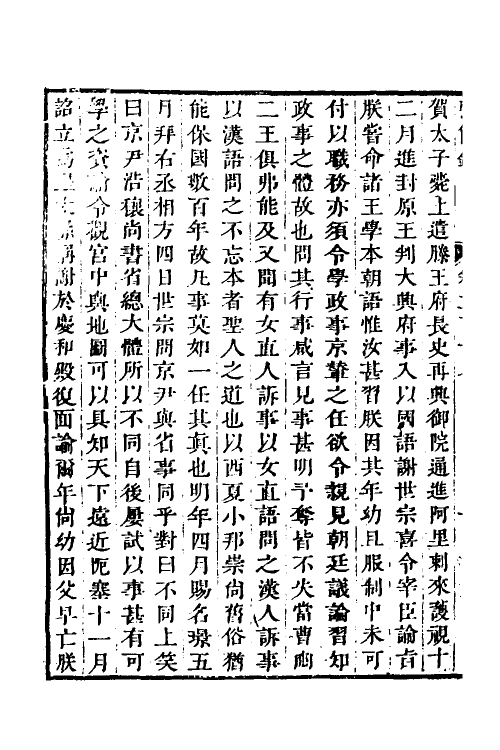 賀太子薨上遣滕王府長史再興御院通進阿里剌來護視十
二月進封原王判大興府事入以國語謝世宗喜令宰臣諭旨
朕嘗命諸王學本朝語惟汝甚習朕因其年幼且服制中未可
付以職務亦須令學政事京輦之任欲令親見朝廷議論習知
政事之體故也問其行事咸言見事甚明予奪皆不失當曹豳
二王俱弗能及又聞有女直人訴事以女直語問之漢人訴事
以漢語問之不忘本者聖人之道也以西夏小邦崇尚舊俗猶
能保國數百年故凡事莫如一任其真也明年四月賜名璟五
月拜右丞相方四日世宗問京尹與省事同乎對曰不同上笑
曰京尹浩穰尚書省總大體所以不同自後屢試以事甚有可
學之資諭令觀宮中輿地圖可以具知天下遠近阨塞十一月
詔立爲皇太孫稱謝於慶和殿復面諭爾年尚幼因父早亡朕